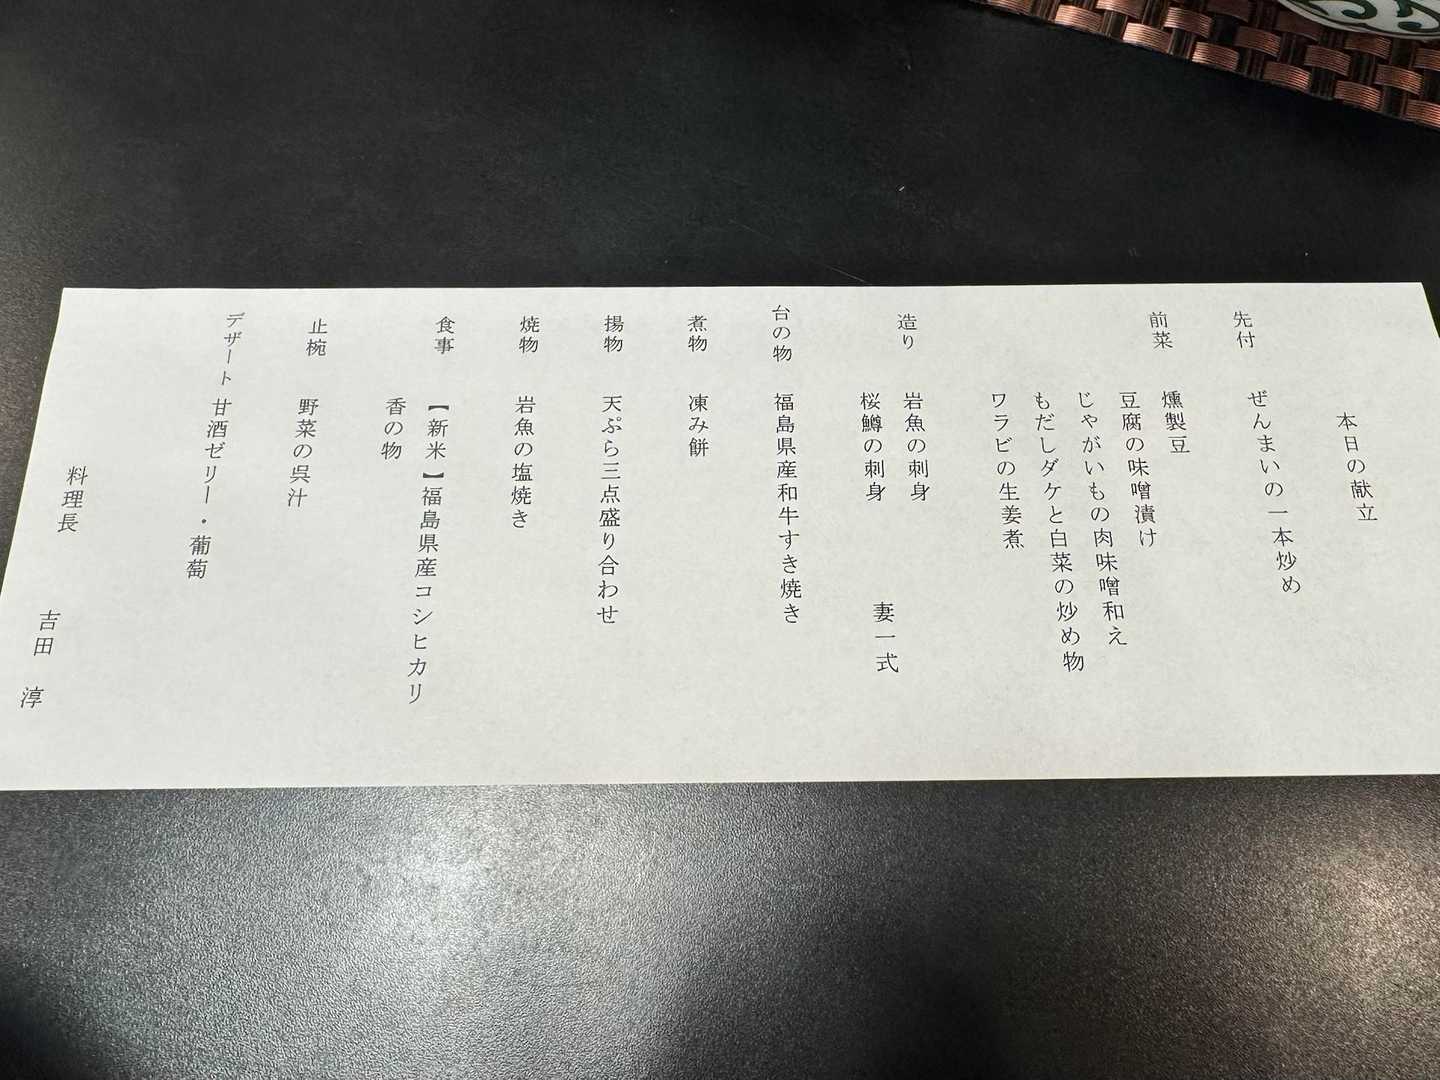 本日の献立
先付　ぜんまいの一本炒め
前菜　燻製豆
豆腐の味噌漬け
じゃがいもの肉味噌和え
もだしダケと白菜の炒め物
ワラビの生姜煮
造り　岩魚の刺身
桜鱒の刺身　妻一式
台の物　福島県産和牛すき焼き
煮物　凍み餅
揚物　天ぷら三点盛り合わせ
焼物　岩魚の塩焼き
食事　【新米】福島県産コシヒカリ
香の物
止椀　野菜の呉汁
デザート　甘酒ゼリー・葡萄
料理長　吉田　淳